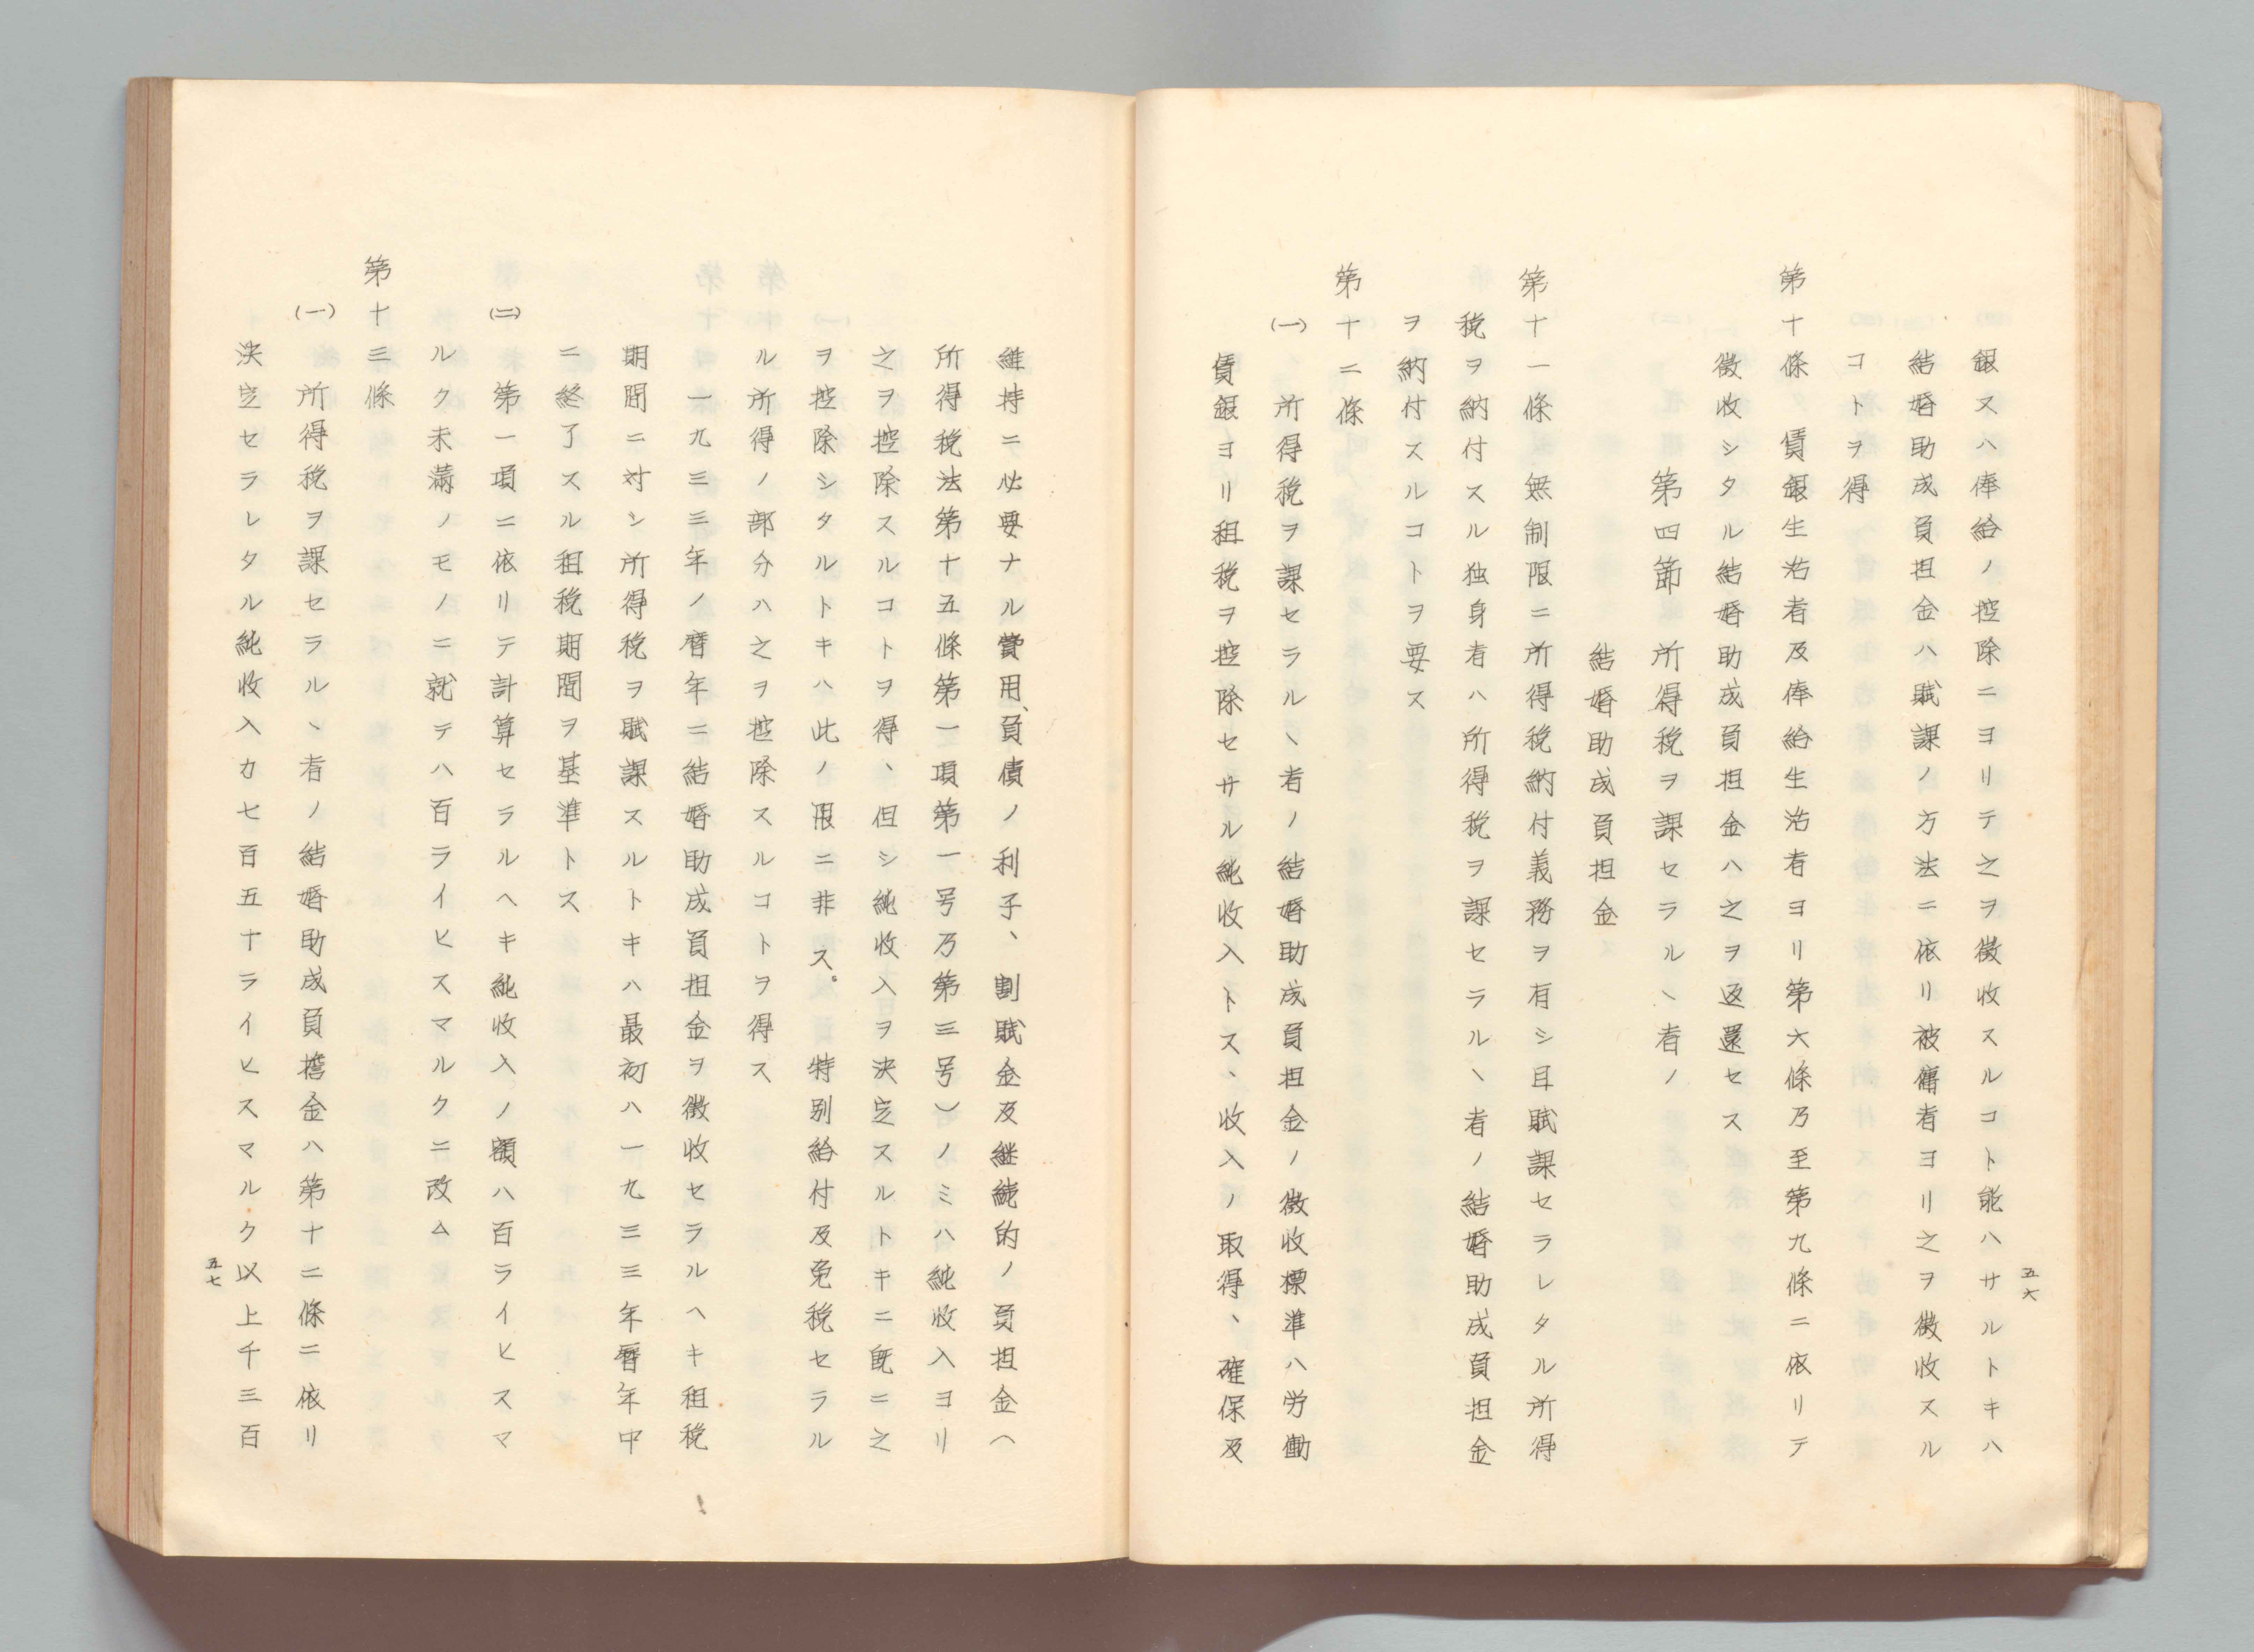 銀又ハ俸給ノ控除ニヨリテ之ヲ徴收スルコト能ハサルトキハ
結婚助成負担金ハ賦課ノ方法ニ依リ被傭者ヨリ之ヲ徴收スル
コトヲ得
第十條　賃銀生活者及俸給生活者ヨリ第六條乃至第九條ニ依リテ
徴收シタル結婚助成負担金ハ之ヲ返還セス
第四節　所得税ヲ課セラルヽ者ノ
結婚助成負担金
第十一條　無制限ニ所得税納付義務ヲ有シ且賦課セラレタル所得
税ヲ納付スル独身者ハ所得税ヲ課セラルヽ者ノ結婚助成負担金
ヲ納付スルコトヲ要ス
第十二條
(一)　所得税ヲ課セラルヽ者ノ結婚助成負担金ノ徴收標準ハ労働
賃銀ヨリ租税ヲ控除セサル純收入トス、收入ノ取得、確保及
五六
維持ニ必要ナル費用、負債ノ利子、割賦金及継続的ノ負担金（
所得税法第十五條第一項第一号乃第三号）ノミハ純收入ヨリ
之ヲ控除スルコトヲ得、但シ純收入ヲ決定スルトキニ既ニ之
ヲ控除シタルトキハ此ノ限ニ非ス。特別給付及免税セラル
ル所得ノ部分ハ之ヲ控除スルコトヲ得ス
一九三三年ノ暦年ニ結婚助成負担金ヲ徴收セラルヘキ租税
期間ニ対シ所得税ヲ賦課スルトキハ最初ハ一九三三年暦年中
ニ終了スル租税期間ヲ基準トス
(二)　第一項ニ依リテ計算セラルヘキ純收入ノ額ハ百ライヒスマ
ルク未満ノモノニ就テハ百ライヒスマルクニ改ム
第十三條
(一)　所得税ヲ課セラルヽ者ノ結婚助成負擔金ハ第十二條ニ依リ
決定セラレタル純收入カ七百五十ライヒスマルク以上千三百
五七